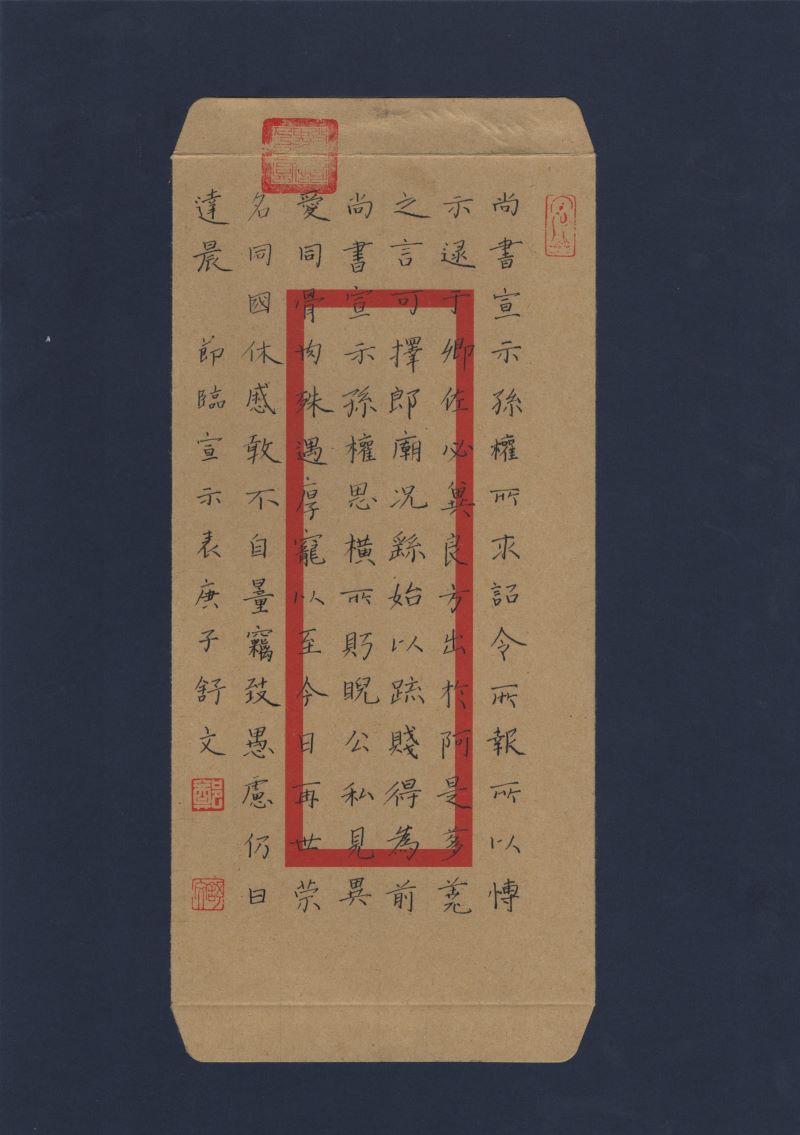 尚書宣示孫權所求詔令所報所以博
示逮于卿佐必冀良方出於阿是芻蕘
之言可擇郎廟况繇始以疏賤得為前
尚書宣示孫權思橫所眄睨公私見異
愛同骨肉殊遇厚寵以至今日再世荣
名同國休慼敢不自量竊致愚慮仍日
達晨 節臨宣示表庚子舒文